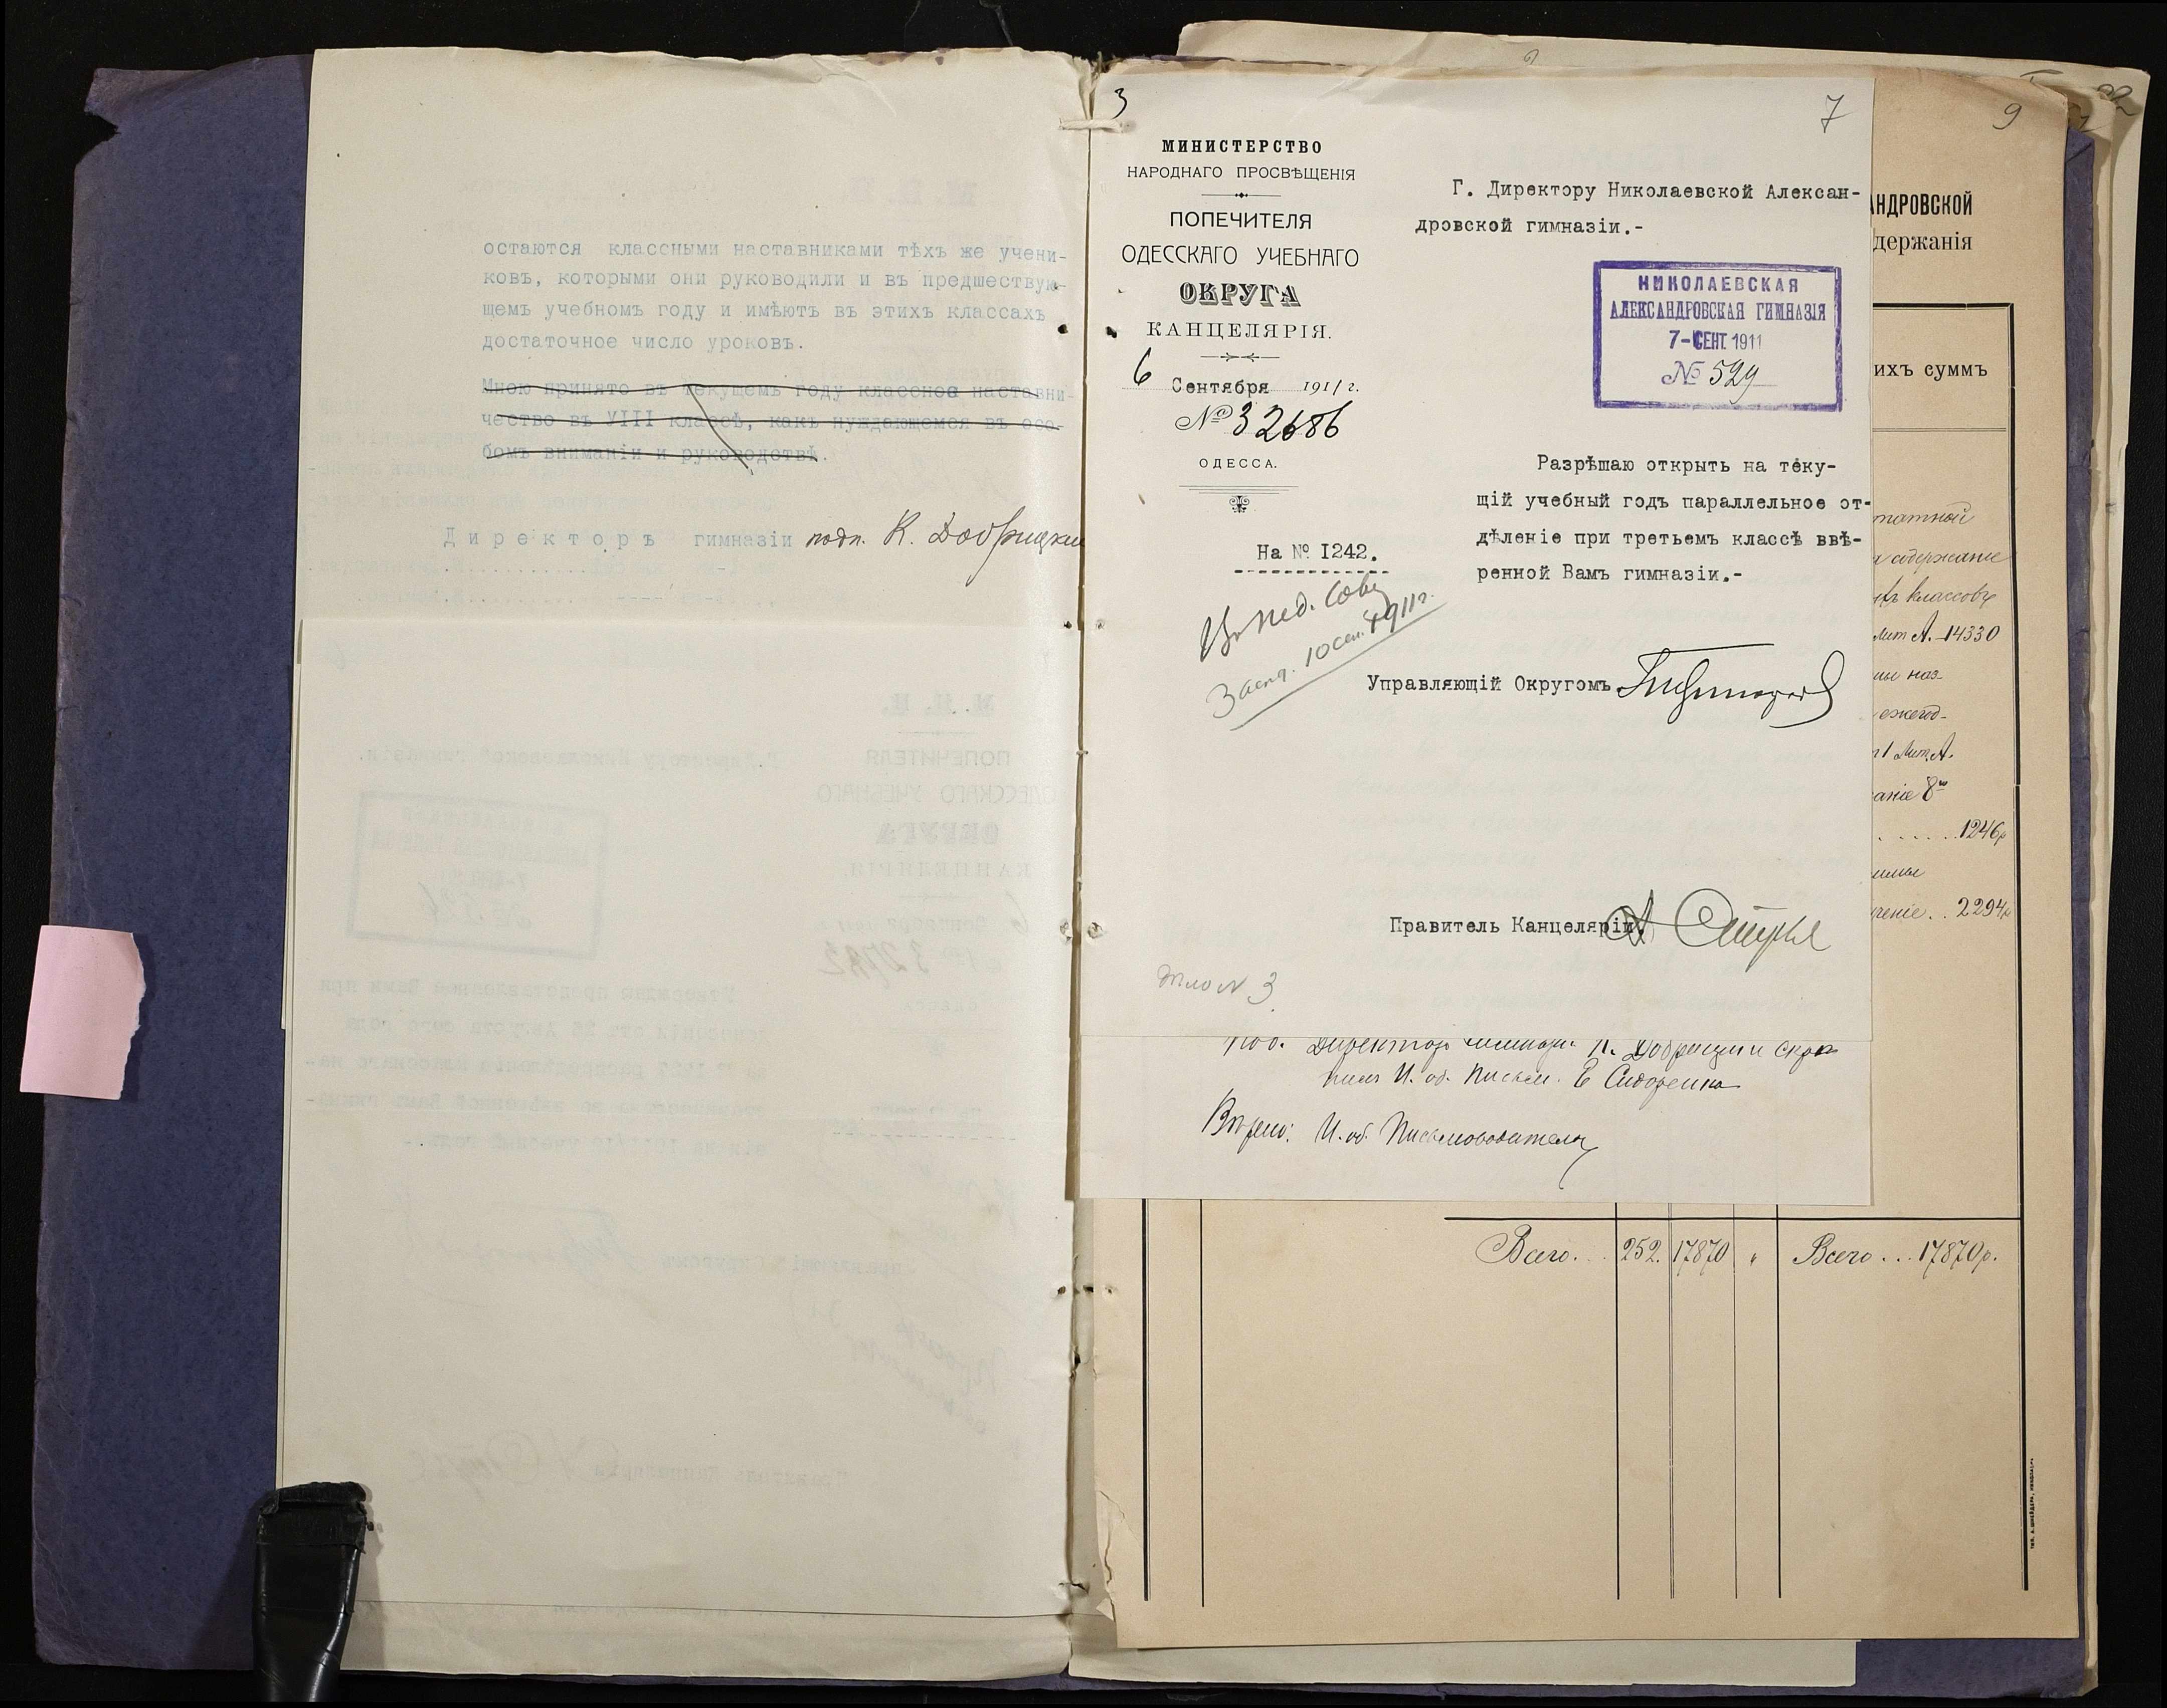 остаются классными наставниками тѣхъ же учени-
ковъ, которыми они руководили и въ предшествую-
щемъ учебномъ году и имѣютъ въ этихъ классахъ
достаточное число уроковъ.
Мною принято въ текущемъ году классное наставни-
чество въ VIII классѣ, какъ нуждающемся въ осо-
бомъ вниманіи и руководствѣ.
Директоръ гимназіи подп. К. Добрицкій
3
7
МИНИСТЕРСТВО
НАРОДНАГО ПРОСВѢЩЕНІЯ
ПОПЕЧИТЕЛЯ
ОДЕССКАГО УЧЕБНАГО
ОКРУГА
КАНЦЕЛЯРІЯ.
6 Сентября 1911 г.
№ 32686
ОДЕССА.
На № I242.
Въ пед. Сов.
Засѣд. 10 сен. 1911 г.
Г. Директору Николаевской Алексан-
дровской гимназіи.-
НИКОЛАЕВСКАЯ
АЛЕКСАНДРОВСКАЯ ГИМНАЗІЯ
7-СЕНТ. 1911
№ 529
Разрѣшаю открыть на теку-
щій учебный годъ параллельное от-
дѣленіе при третьемъ классѣ ввѣ-
ренной Вамъ гимназіи.-
Управляющій Округомъ
Правитель Канцеляріи
дѣло № 3
Под. Директоръ гимназіи К. Добрицкій скрѣ
пилъ И. об. Письм. Е Сидоренко
Вѣрно: И. об. Письмоводителя
9
АНДРОВСКОЙ
держанія
ихъ суммъ
татной
содержаніе
классовъ
Лит А. 14330
наз-
ежегод-
1 Лит. А.
аніе 8го
1246р
ченіе . . 2294р
Всего . . 252. 17870 " Всего . . . 17870р.